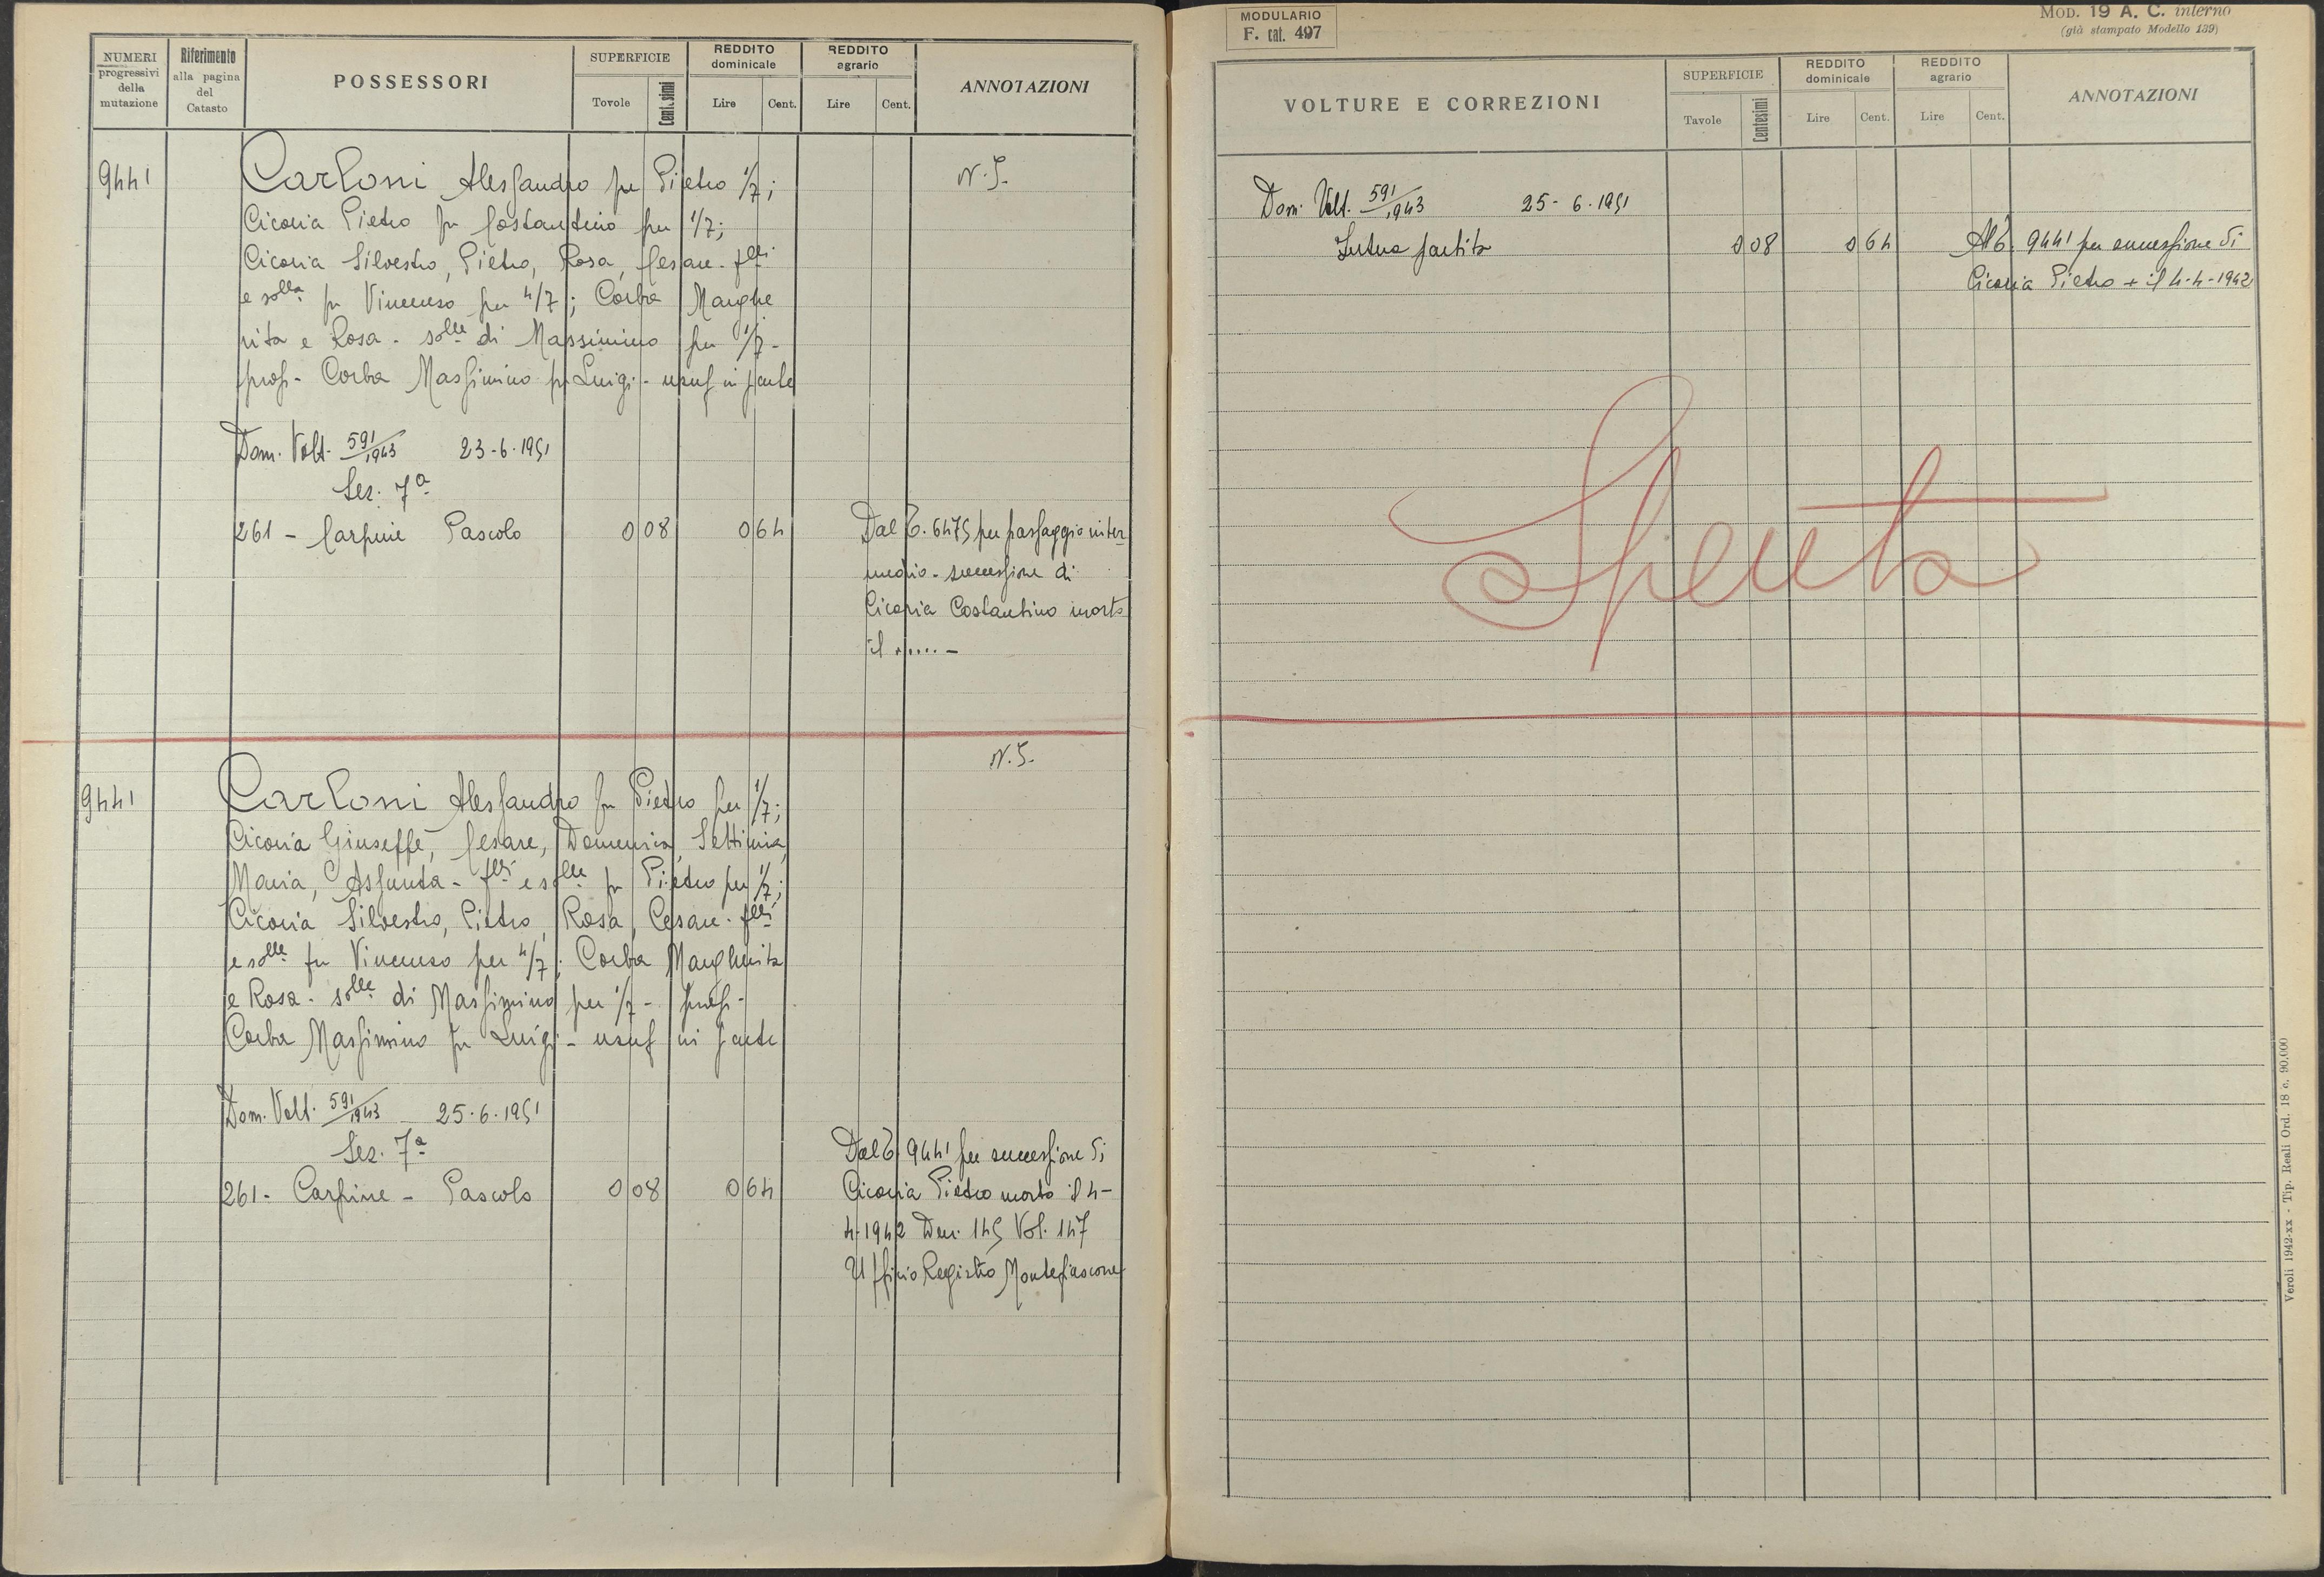 NUMERI progressivi della mutazione
Riferimento alla pagina del Catasto
POSSESSORI
SUPERFICIE
Tovole
Centesimi
REDDITO dominicale
Lire
Cent.
REDDITO agrario
Lire
Cent.
ANNOTAZIONI
9441
Carloni Alessandro fu Pietro 1/7;
N.5.
Cicoria Pietro fu Costantino per 1/7;
Cicoria Silvestro, Pietro, Rosa, Cesare - flli
e solle fu Vincenso per 4/7; Corba Marghe
rita e Rosa - solle di Massimino per 1/7 -
prop - Corba Massimino fu Luigi - usuf in parte
Dom. Volt. 591/1943 23-6-1951
Sez. 7a
261 - Carpine Pascolo 0 08 0 64 Dal 6. 6475 per passaggio inter
medio - successione di
Cicoria Costantino morto
il ...... -
N.5.
9441
Carloni Alessandro fu Pietro per 1/7;
Cicoria Giuseppe, Cesare, Domenica, Settimia,
Maria, Assunta - flli e solle fu Pietro per 1/7;
Cicoria Silvestro, Pietro, Rosa, Cesare - flli
e solle fu Vincenso per 4/7; Corba Margherita
e Rosa - solle di Massimino per 1/7 - prop -
Corba Massimino fu Luigi - usuf in parte
Dom. Volt. 591/1943 25-6-1951
Sez. 7a
261 - Carpine - Pascolo 0 08 0 64
Dal 6 9441 per successione di
Cicoria Pietro morto il 4-
4-1942 Den. 145 Vol. 147
Ufficio Registro Montefiascone
MODULARIO
F. cat. 497
MOD. 19 A. C. interno
(già stampato Modello 139)
VOLTURE E CORREZIONI
SUPERFICIE
Tavole
Centesimi
REDDITO dominicale
Lire
Cent.
REDDITO agrario
Lire
Cent.
ANNOTAZIONI
Dom. Volt. 591/1943 25-6-1951
Intera partita 0 08 0 64 Al 6. 9441 per successione di
Cicoria Pietro + il 4-4-1942
Spenta
Veroli 1942-XX - Tip. Reali Ord. 18 c. 90.000